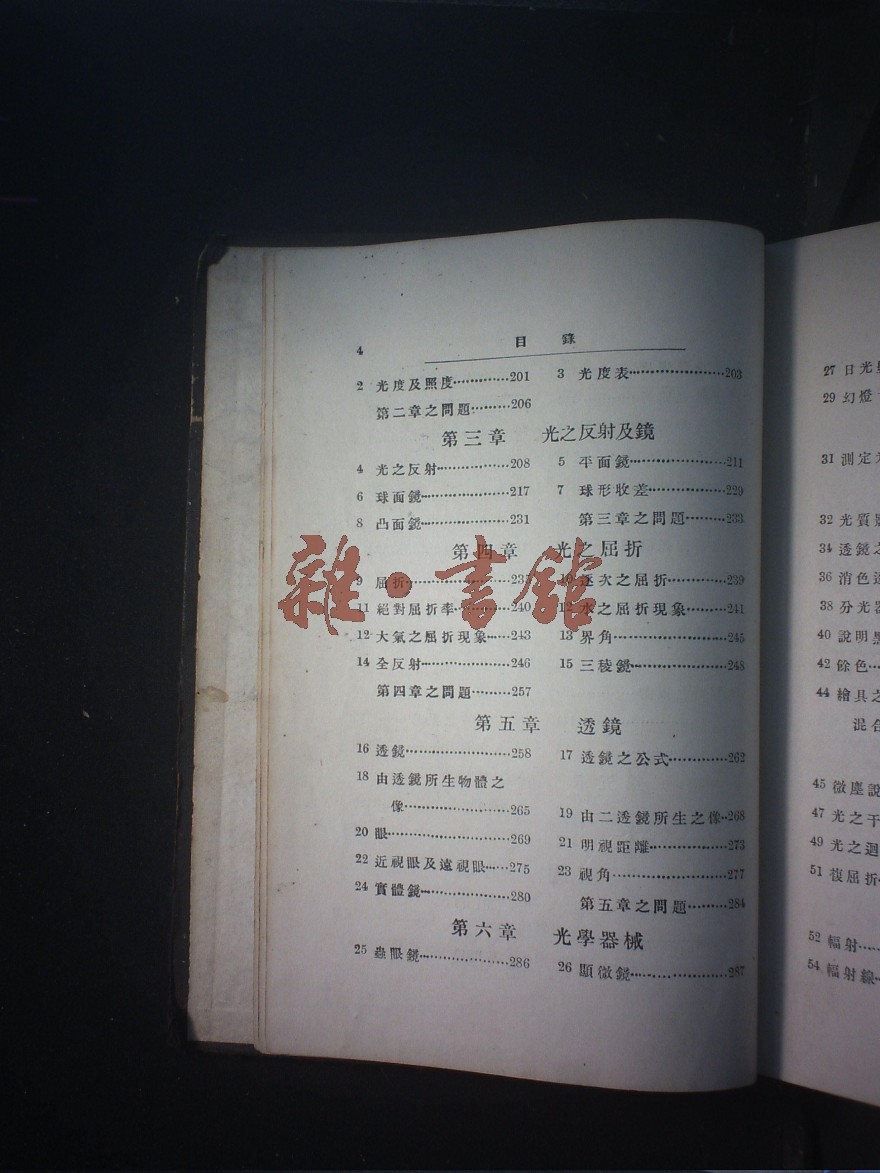 4 目錄
2 光度及照度 201 3 光度表 203
第二章之問題 206
第三章 光之反射及鏡
4 光之反射 208 5 平面鏡 211
6 球面鏡 217 7 球形收差 229
8 凸面鏡 231 第三章之問題 233
第四章 光之屈折
9 屈折 10 逐次之屈折 239
11 絕對屈折率 240 12 水之屈折現象 241
12 大氣之屈折現象 243 13 界角 245
14 全反射 246 15 三稜鏡 248
第四章之問題 257
第五章 透鏡
16 透鏡 258 17 透鏡之公式 262
18 由透鏡所生物體之
像 265 19 由二透鏡所生之像 268
20 眼 269 21 明視距離 273
22 近視眼及遠視眼 275 23 視角 277
24 實體鏡 280 第五章之問題 284
第六章 光學器械
25 蟲眼鏡 286 26 顯微鏡 287
27 日光
29 幻燈
31 測定
32 光質
34 透鏡之
36 消色
38 分光器
40 說明
42 餘色
44 繪具之
混合
45 微塵說
47 光之干
49 光之迴
51 複屈折
52 輻射
54 輻射線
雜·書館